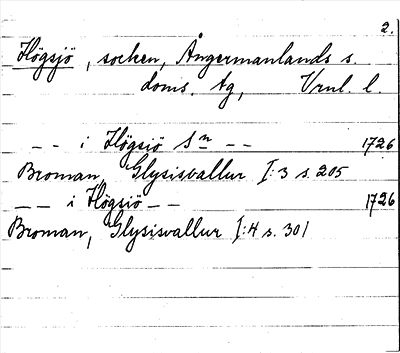 2.
Högsjö, socken, Ångermanlands s.
doms. tg, Vrnl. l.
– – i Högsiö Sn – – 1726
Broman, Glysisvallur I:3 s. 205
– – i Högsiö – – 1726
Broman, Glysisvallur I:4 s. 301